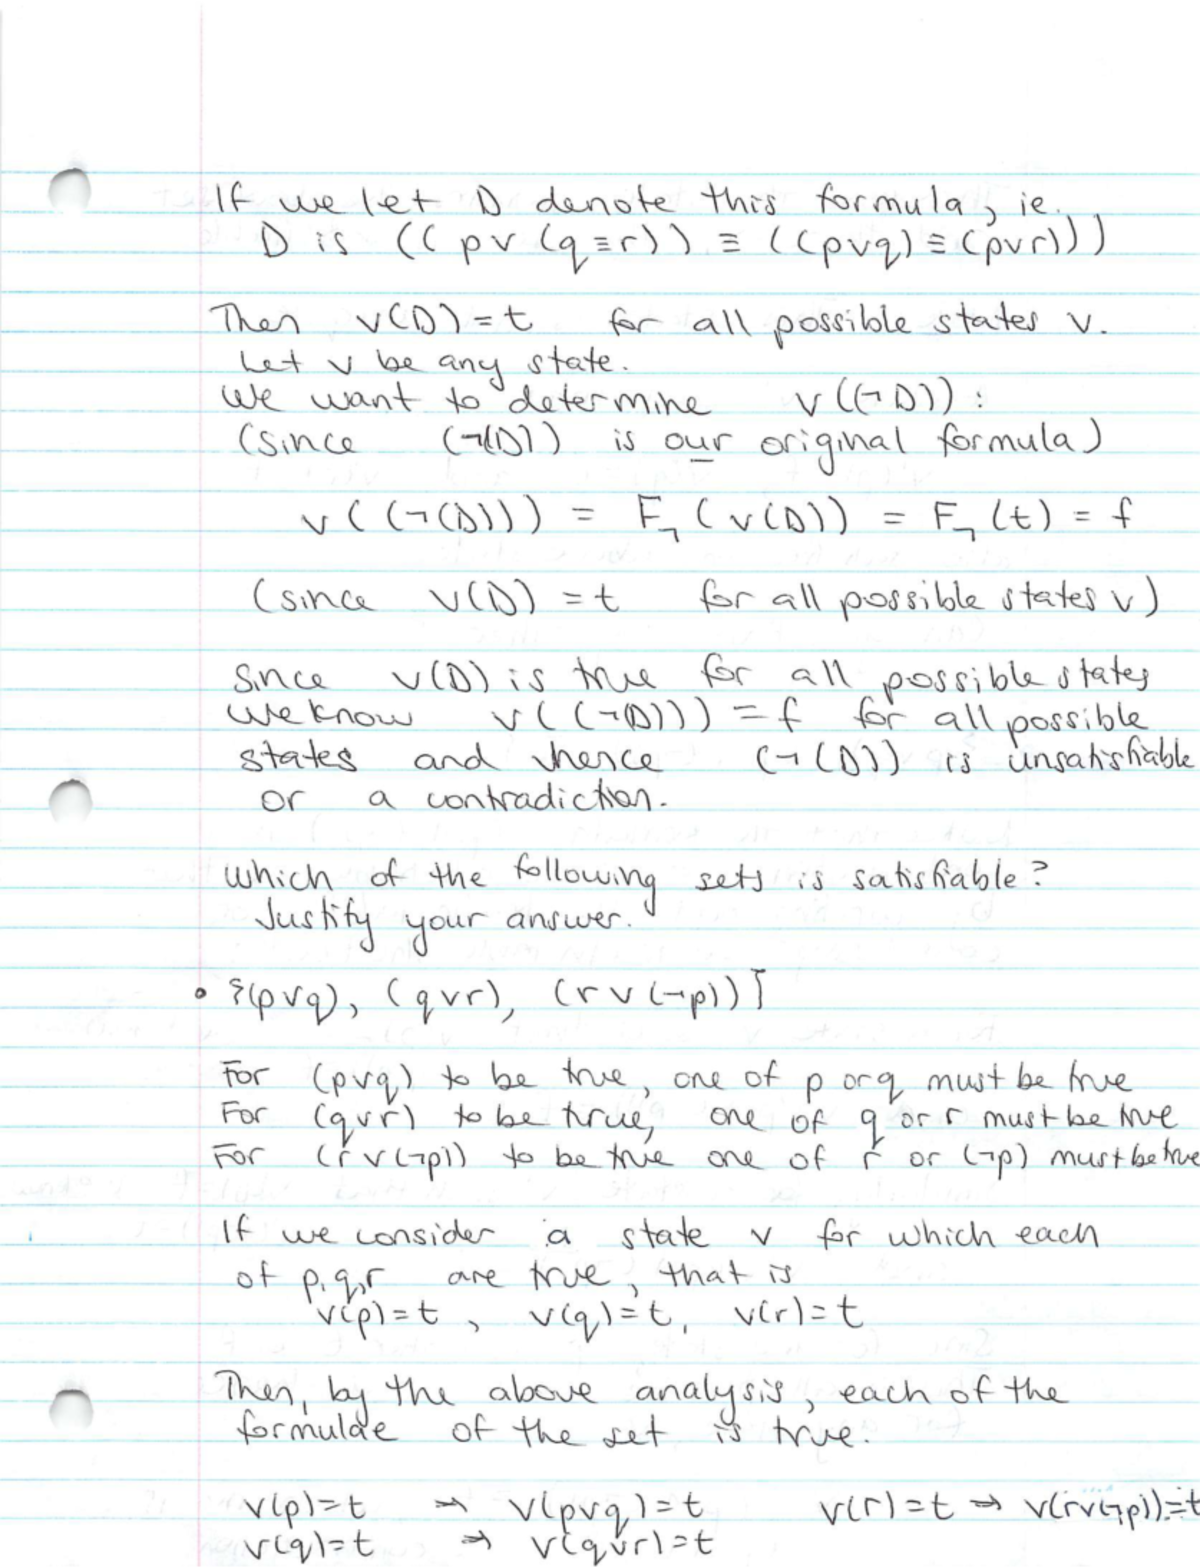 If we let D denote this formula, ie.
D is ((pv(q≡r)) ≡ ((pvq)≡(pvr)))
Then v(D)=t for all possible states v.
Let v be any state.
We want to determine v((¬D)):
(since (¬(D)) is our original formula)
v((¬(D))) = F¬(v(D)) = F¬(t) = f
(since v(D)=t for all possible states v)
Since v(D) is true for all possible states
we know v((¬(D))) = f for all possible
states and hence (¬(D)) is unsatisfiable
or a contradiction.
Which of the following sets is satisfiable?
Justify your answer.
• {(pvq), (qvr), (rv(¬p))}
For (pvq) to be true, one of p or q must be true
For (qvr) to be true, one of q or r must be true
For (rv(¬p)) to be true one of r or (¬p) must be true
If we consider a state v for which each
of p,q,r are true, that is
v(p)=t, v(q)=t, v(r)=t
Then, by the above analysis, each of the
formulae of the set is true.
v(p)=t ⇒ v(pvq)=t v(r)=t ⇒ v(rv(¬p))=t
v(q)=t ⇒ v(qvr)=t